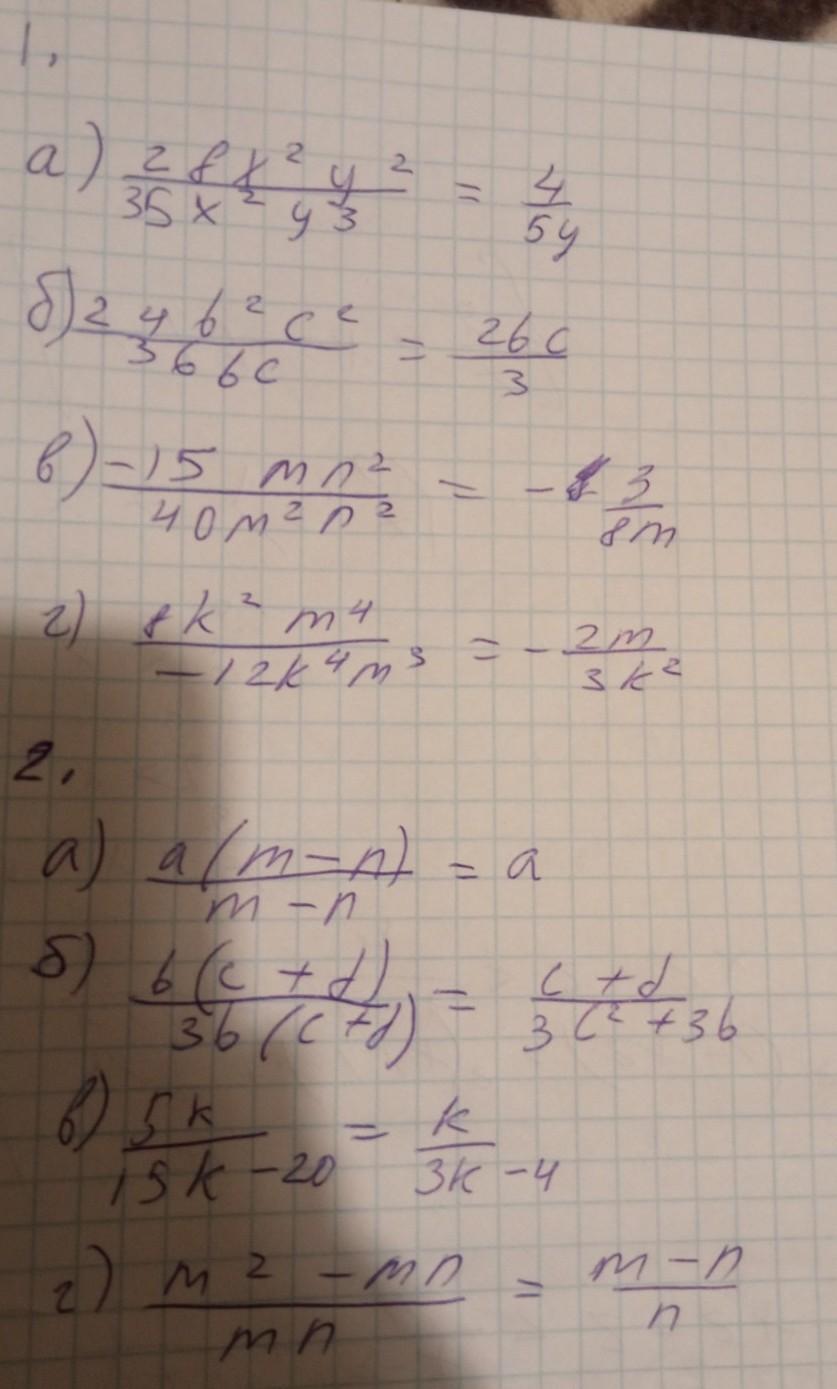 1.
а) 28x²y²/35x²y³ = 4/5y
б) 24b²c²/36bc = 2bc/3
в) -15mn²/40m²n² = -3/8m
г) 8k²m⁴/-12k⁴m³ = -2m/3k²
2.
а) a(m-n)/m-n = a
б) b(c+d)/3b(c+d) = c+d/3c²+3b
в) 5k/15k-20 = k/3k-4
г) m²-mn/mn = m-n/n